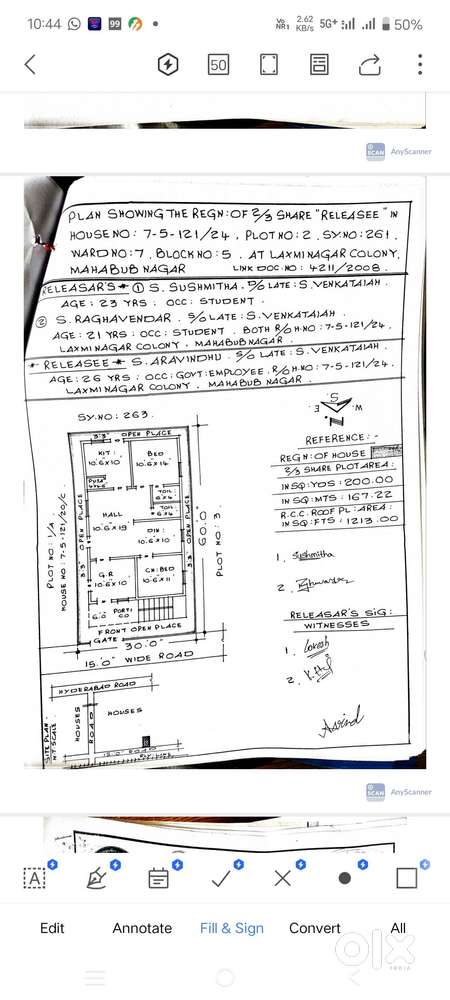 10:44
99
Vo NR1
2.62 KB/s
5G+
50%
50
SCAN AnyScanner
PLAN SHOWING THE REGN: OF 2/3 SHARE "RELEASEE" IN
HOUSE NO: 7-5-121/24, PLOT NO: 2, SY.NO: 261,
WARD NO: 7, BLOCK NO: 5, AT LAXMINAGAR COLONY,
MAHABUB NAGAR LINK DOC: NO: 4211/2008.
RELEASAR'S ① S. SUSHMITHA. D/O LATE: S. VENKATAIAH.
AGE: 23 YRS: OCC: STUDENT.
② S. RAGHAVENDAR. S/O LATE: S. VENKATAIAH.
AGE: 21 YRS: OCC: STUDENT. BOTH R/O H.NO: 7-5-121/24,
LAXMINAGAR COLONY. MAHABUB NAGAR.
RELEASEE S. ARAVINDHU. S/O LATE: S. VENKATAIAH.
AGE: 26 YRS: OCC: GOVT: EMPLOYEE. R/O H.NO: 7-5-121/24,
LAXMINAGAR COLONY. MAHABUB NAGAR.
SY.NO: 263.
3'.3" OPEN PLACE
KIT:
10.6x10
BED
10.6x14
PUJA
TOIL
6x4
TOIL
6x4
HALL
10.6x19
DIN:
10.6x10
G.R
10.6x10
CH: BED
10.6x11
6.0
PORTI
CO
FRONT OPEN PLACE
GATE
3'.3" OPEN PLACE
OPEN PLACE
PLOT NO: 1/A
HOUSE NO: 7-5-121/20/C.
60.0"
PLOT NO: 3.
30.0"
15.0" WIDE ROAD
S
E
W
N
REFERENCE:-
REGN: OF HOUSE
2/3 SHARE PLOT AREA:
IN SQ: YDS: 200.00
IN SQ: MTS: 167.22
R.C.C. ROOF PL: AREA:
IN SQ: FTS: 1213.00
1. Sushmitha
2.
RELEASAR'S SIG:
WITNESSES
1. Lokesh
2.
Aravind
HYDERABAD ROAD
HOUSES
ROAD
HOUSES
15.0" ROAD
SITE PLAN
N.T SCALE
SCAN AnyScanner
A
Edit
Annotate
Fill & Sign
Convert
All
olx
INDIA